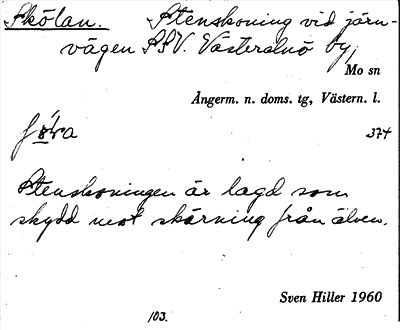 Skölan. Stenskoning vid järn-
vägen SSV. Västeralnö by,
Mo sn
Ångerm. n. doms. tg, Västern. l.
374
Stenskoningen är lagd som
skydd mot skärning från älven.
Sven Hiller 1960
103.